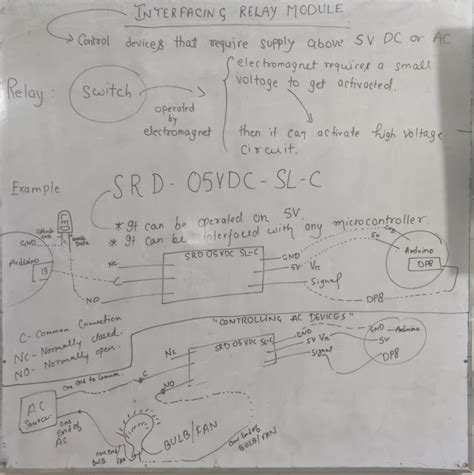 INTERFACING RELAY MODULE
Control devices that require supply above 5V DC or AC
Relay : Switch
operated
by
electromagnet
electromagnet requires a small
voltage to get activated.
then it can activate high voltage
circuit.
Example SRD-05VDC-SL-C
* It can be operated on 5V.
* It can be interfaced with any microcontroller.
LED
GND
Arduino
13
NC
C
NO
SRD 05 VDC SL-C
GND
5V Vcc
Signal
5V
Arduino
DP8
DP8
C- Common Connection
NC- Normally closed.
NO- Normally open.
"CONTROLLING AC DEVICES"
NC
C
NO
SRD 05VDC SL-C
GND
5V Vcc
Signal
GND
Arduino
5V
DP8
one end to common
AC
Source
one
end of
AC
one end
BULB/FAN
one end of
BULB/FAN